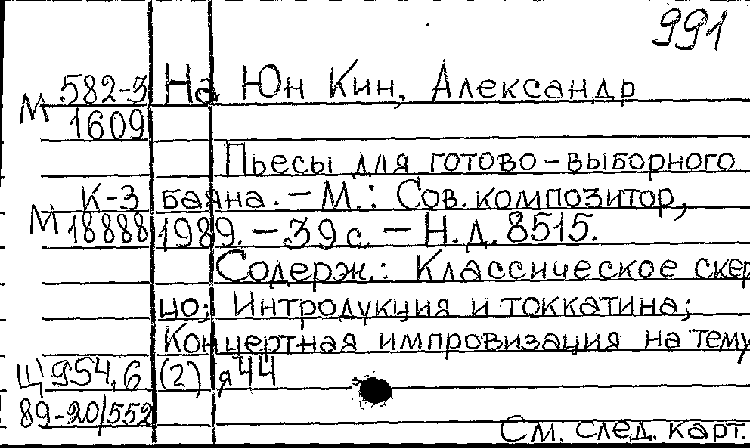 991
М 582-3 На Юн Кин, Александр
1609
Пьесы для готово-выборного
К-3 баяна. — М.: Сов. композитор,
М 18888 1989. — 39 с. — Н.д. 8515.
Содерж.: Классическое скер
цо; Интродукция и токкатина;
Концертная импровизация на тему
Щ 954,6 (2) я 44
89-20/552
См. след. карт